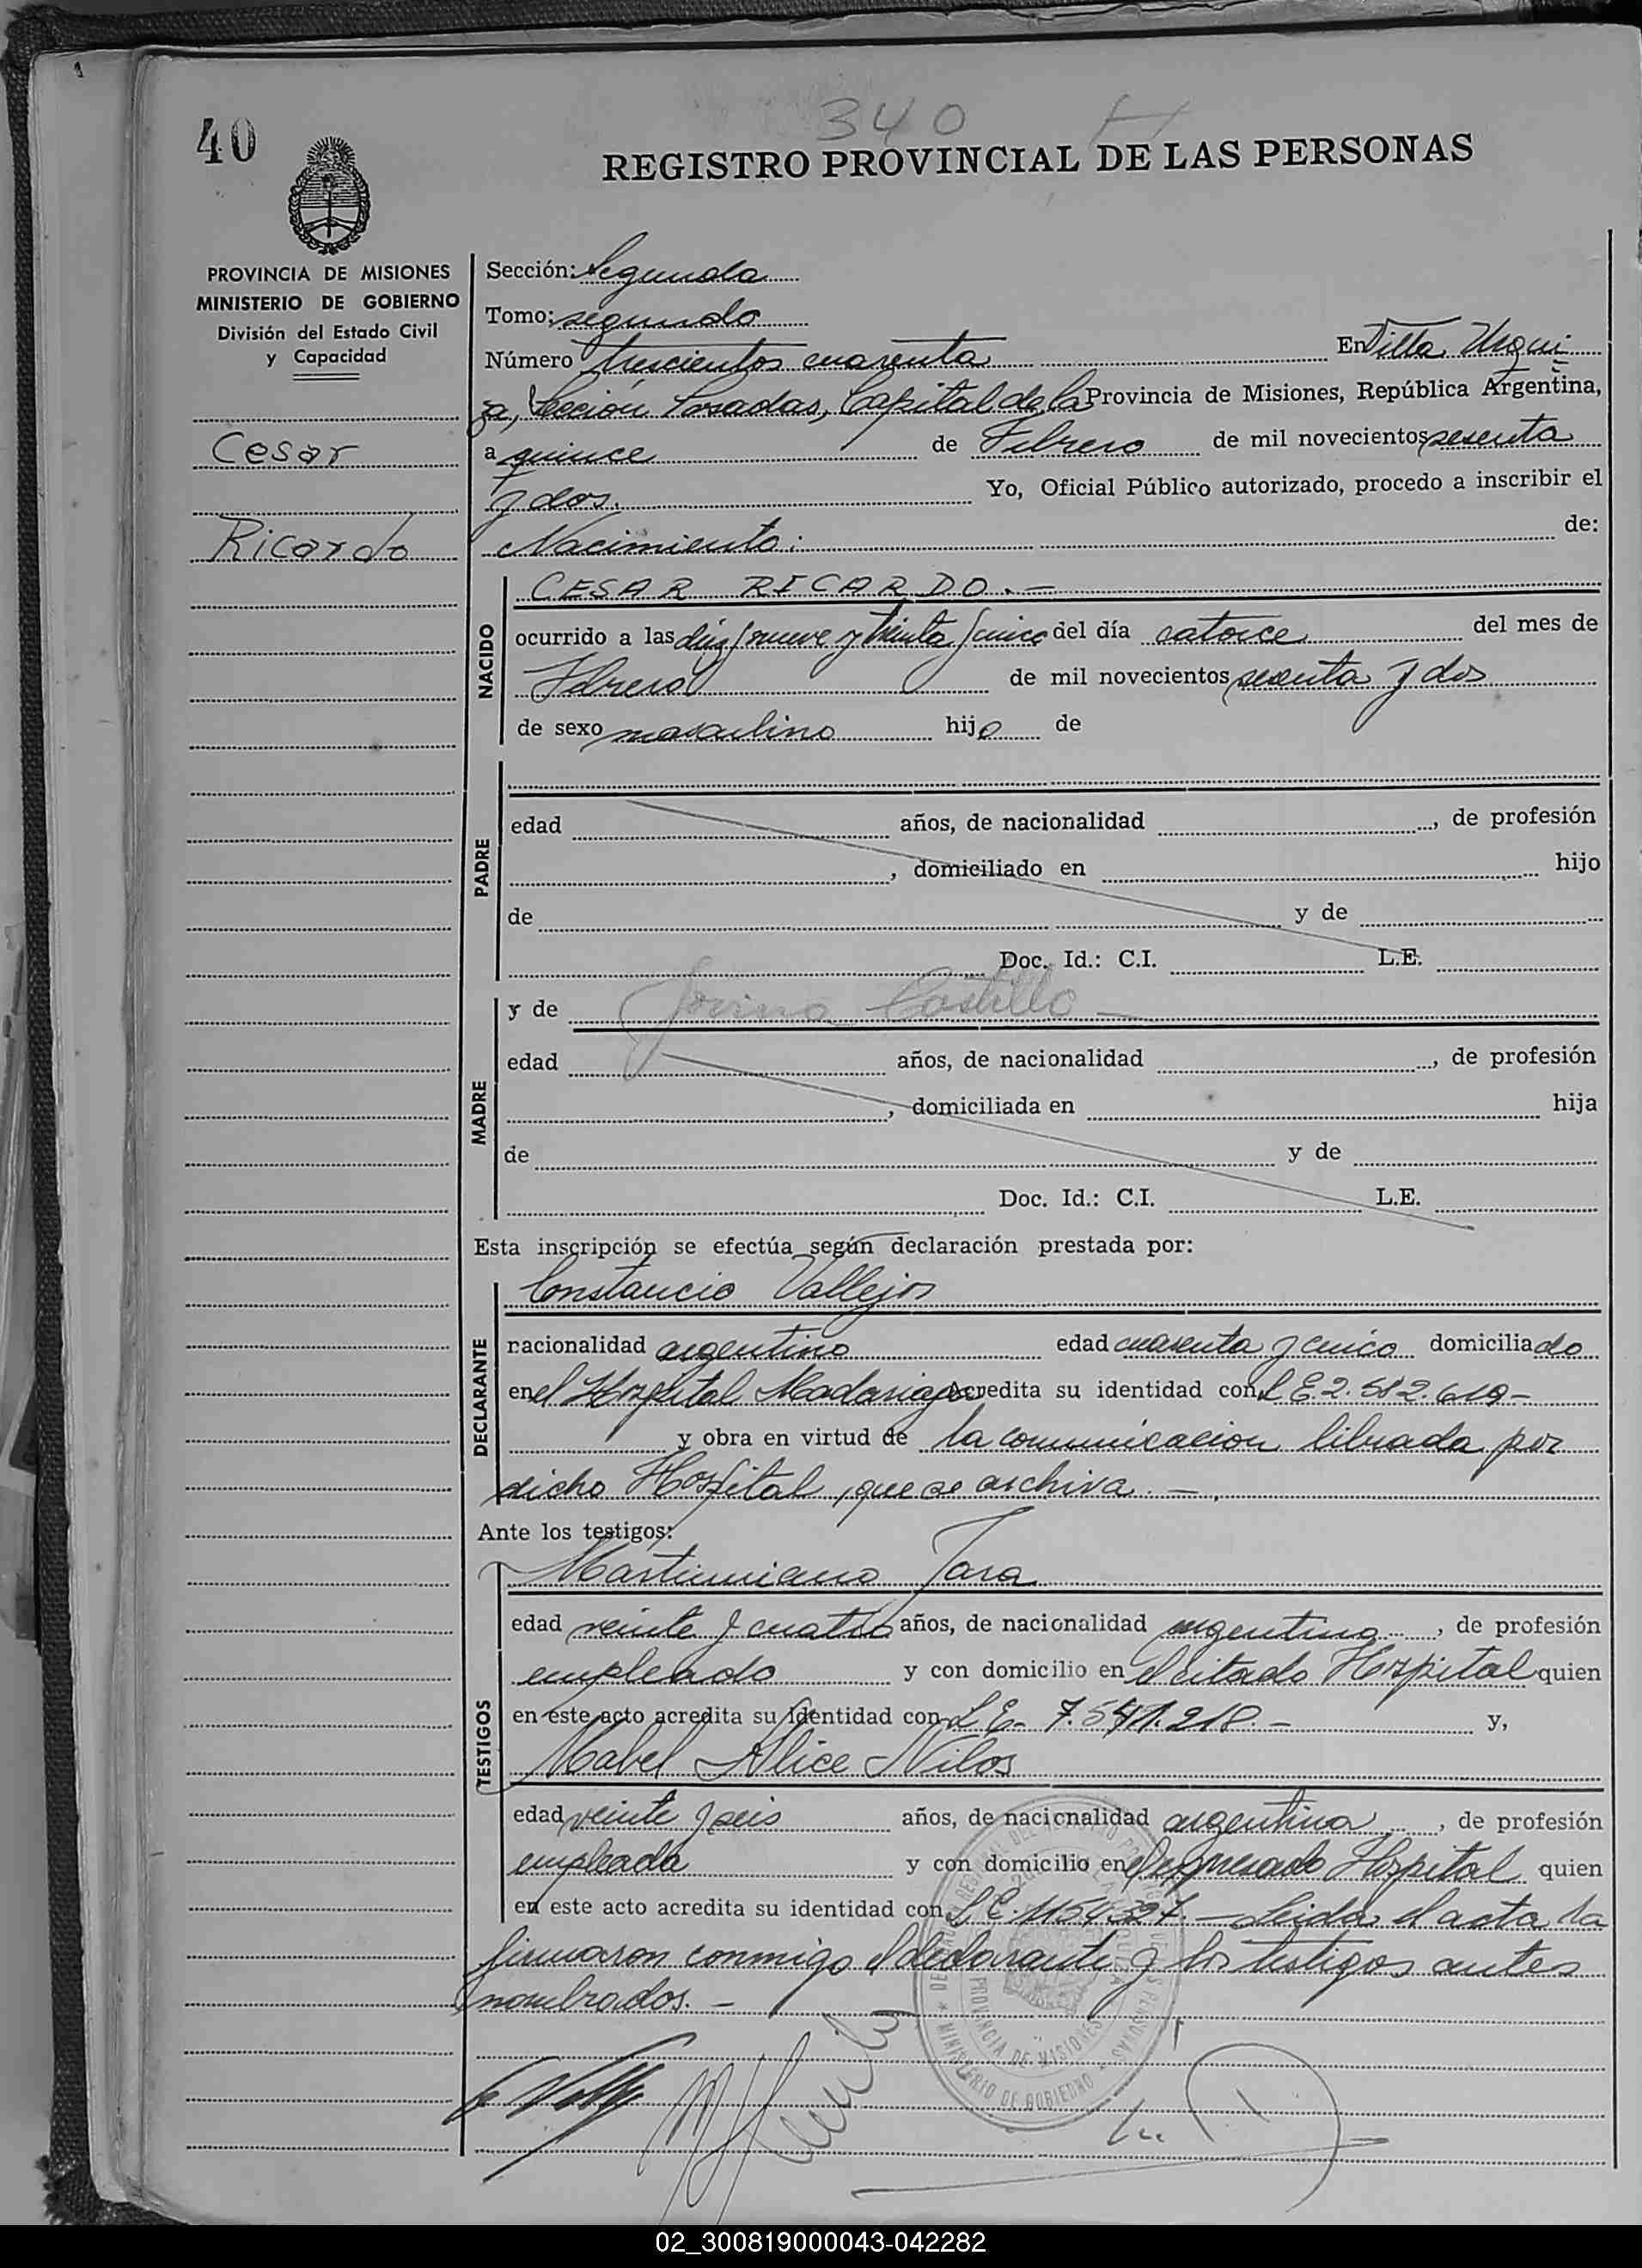 340
40
REGISTRO PROVINCIAL DE LAS PERSONAS
PROVINCIA DE MISIONES
MINISTERIO DE GOBIERNO
División del Estado Civil
y Capacidad
Cesar
Ricardo
Sección: Segunda
Tomo: segundo
Número trescientos cuarenta En Villa Urqui
za, Sección Posadas, Capital de la Provincia de Misiones, República Argentina,
a quince de Febrero de mil novecientos sesenta
y dos. Yo, Oficial Público autorizado, procedo a inscribir el
Nacimiento: de:
NACIDO
CESAR RICARDO.-
ocurrido a las diez y nueve y treinta y cinco del día catorce del mes de
Febrero de mil novecientos sesenta y dos
de sexo masculino hijo de
PADRE
edad años, de nacionalidad , de profesión
, domiciliado en hijo
de y de
Doc. Id.: C.I. L.E.
MADRE
y de Jovina Castillo
edad años, de nacionalidad , de profesión
, domiciliada en hija
de y de
Doc. Id.: C.I. L.E.
Esta inscripción se efectúa según declaración prestada por:
DECLARANTE
Constancio Vallejos
nacionalidad argentino edad cuarenta y cinco domiciliado
en el Hospital Madariaga Acredita su identidad con L E. 2.582.619-
y obra en virtud de la comunicacion librada por
dicho Hospital, que se archiva.-
Ante los testigos:
TESTIGOS
Martimiano Jara
edad veinte y cuatro años, de nacionalidad argentino, de profesión
empleado y con domicilio en el citado Hospital quien
en este acto acredita su identidad con L E- 7.541.218.- y,
Mabel Alice Nilos
edad veinte y seis años, de nacionalidad argentina, de profesión
empleada y con domicilio en el expresado Hospital quien
en este acto acredita su identidad con L C. 1154327.- Leida el acta la
firmaron conmigo el declarante y los testigos antes
nombrados.-
MINISTERIO DE GOBIERNO
PROVINCIA DE MISIONES
02_300819000043-042282